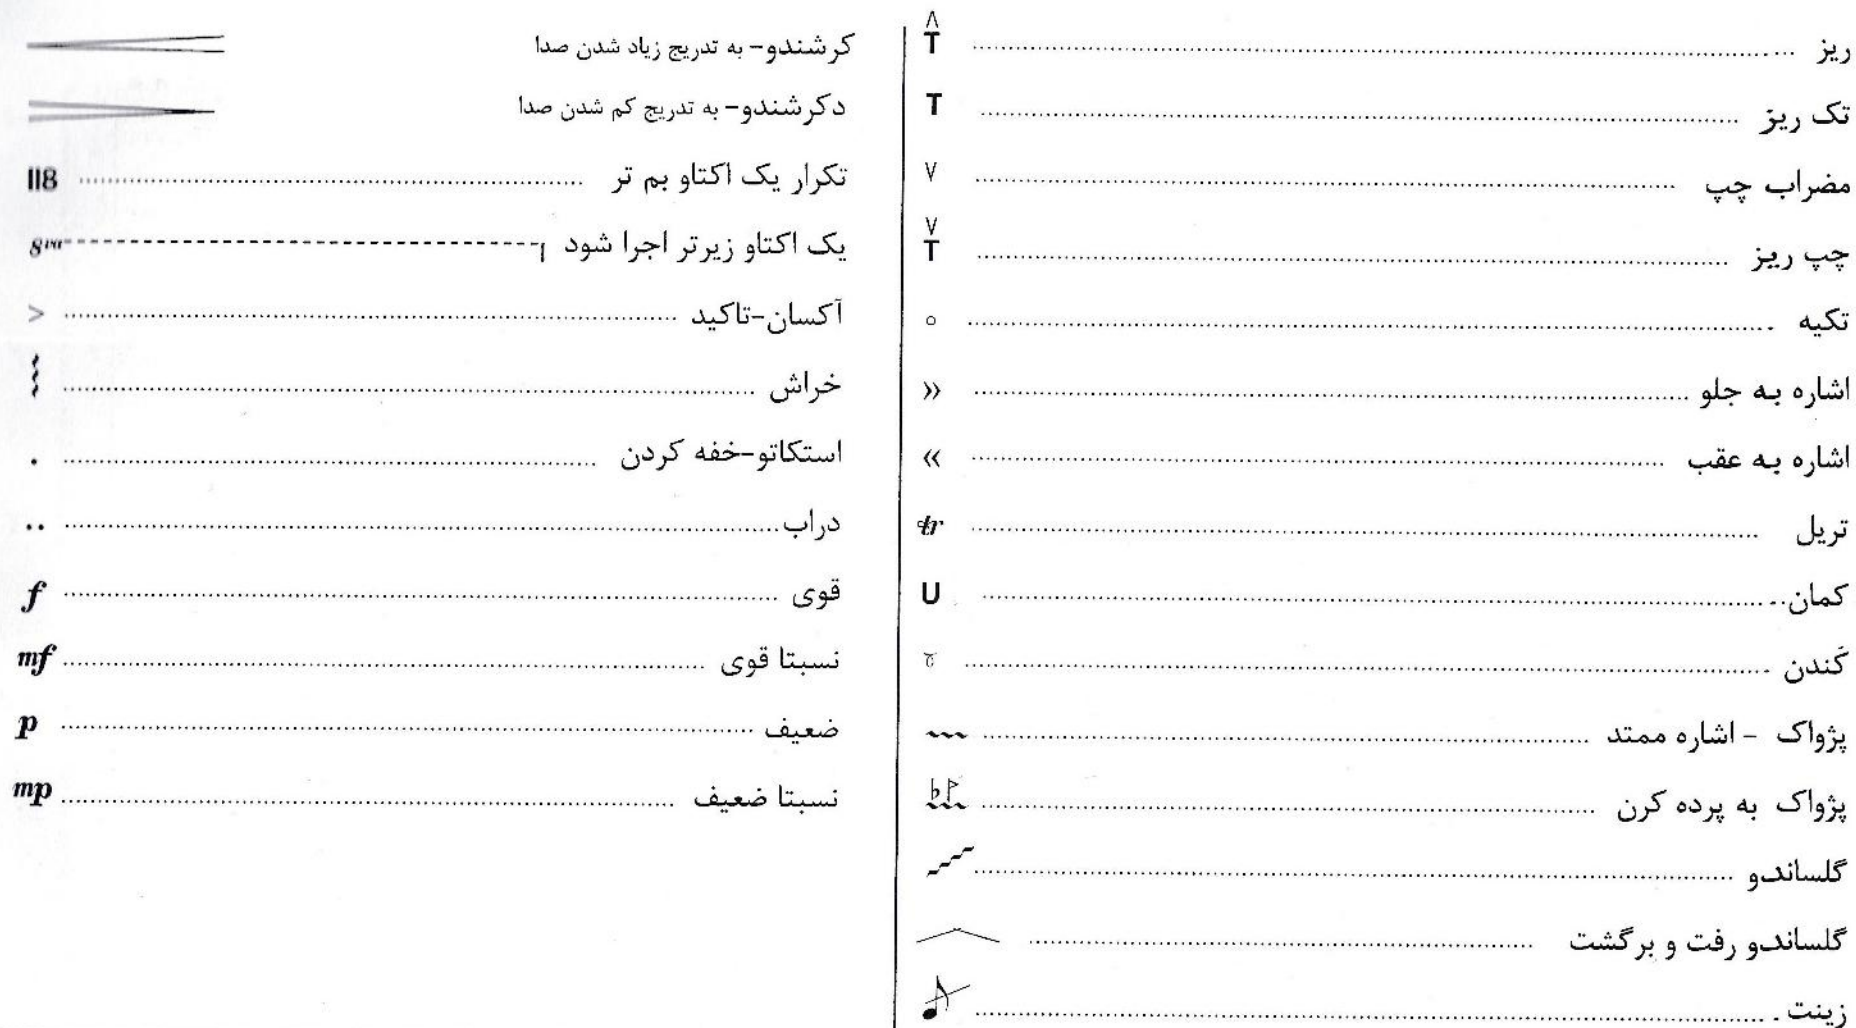 ریز ........ T
تک ریز ........ T
مضراب چپ ........ V
چپ ریز ........ V T
تکیه ........ o
اشاره به جلو ........ »
اشاره به عقب ........ «
تریل ........ tr
کمان ........ U
کَندن ........
پژواک - اشاره ممتد ........
پژواک به پرده کرن ........
گلساندو ........
گلساندو رفت و برگشت ........
زینت ........
کرشندو- به تدریج زیاد شدن صدا
دکرشندو- به تدریج کم شدن صدا
تکرار یک اکتاو بم تر ........ ll8
یک اکتاو زیرتر اجرا شود -------- 8va
آکسان-تاکید ........ >
خراش ........
استکاتو-خفه کردن ........ .
دراب ........ ..
قوی ........ f
نسبتا قوی ........ mf
ضعیف ........ p
نسبتا ضعیف ........ mp